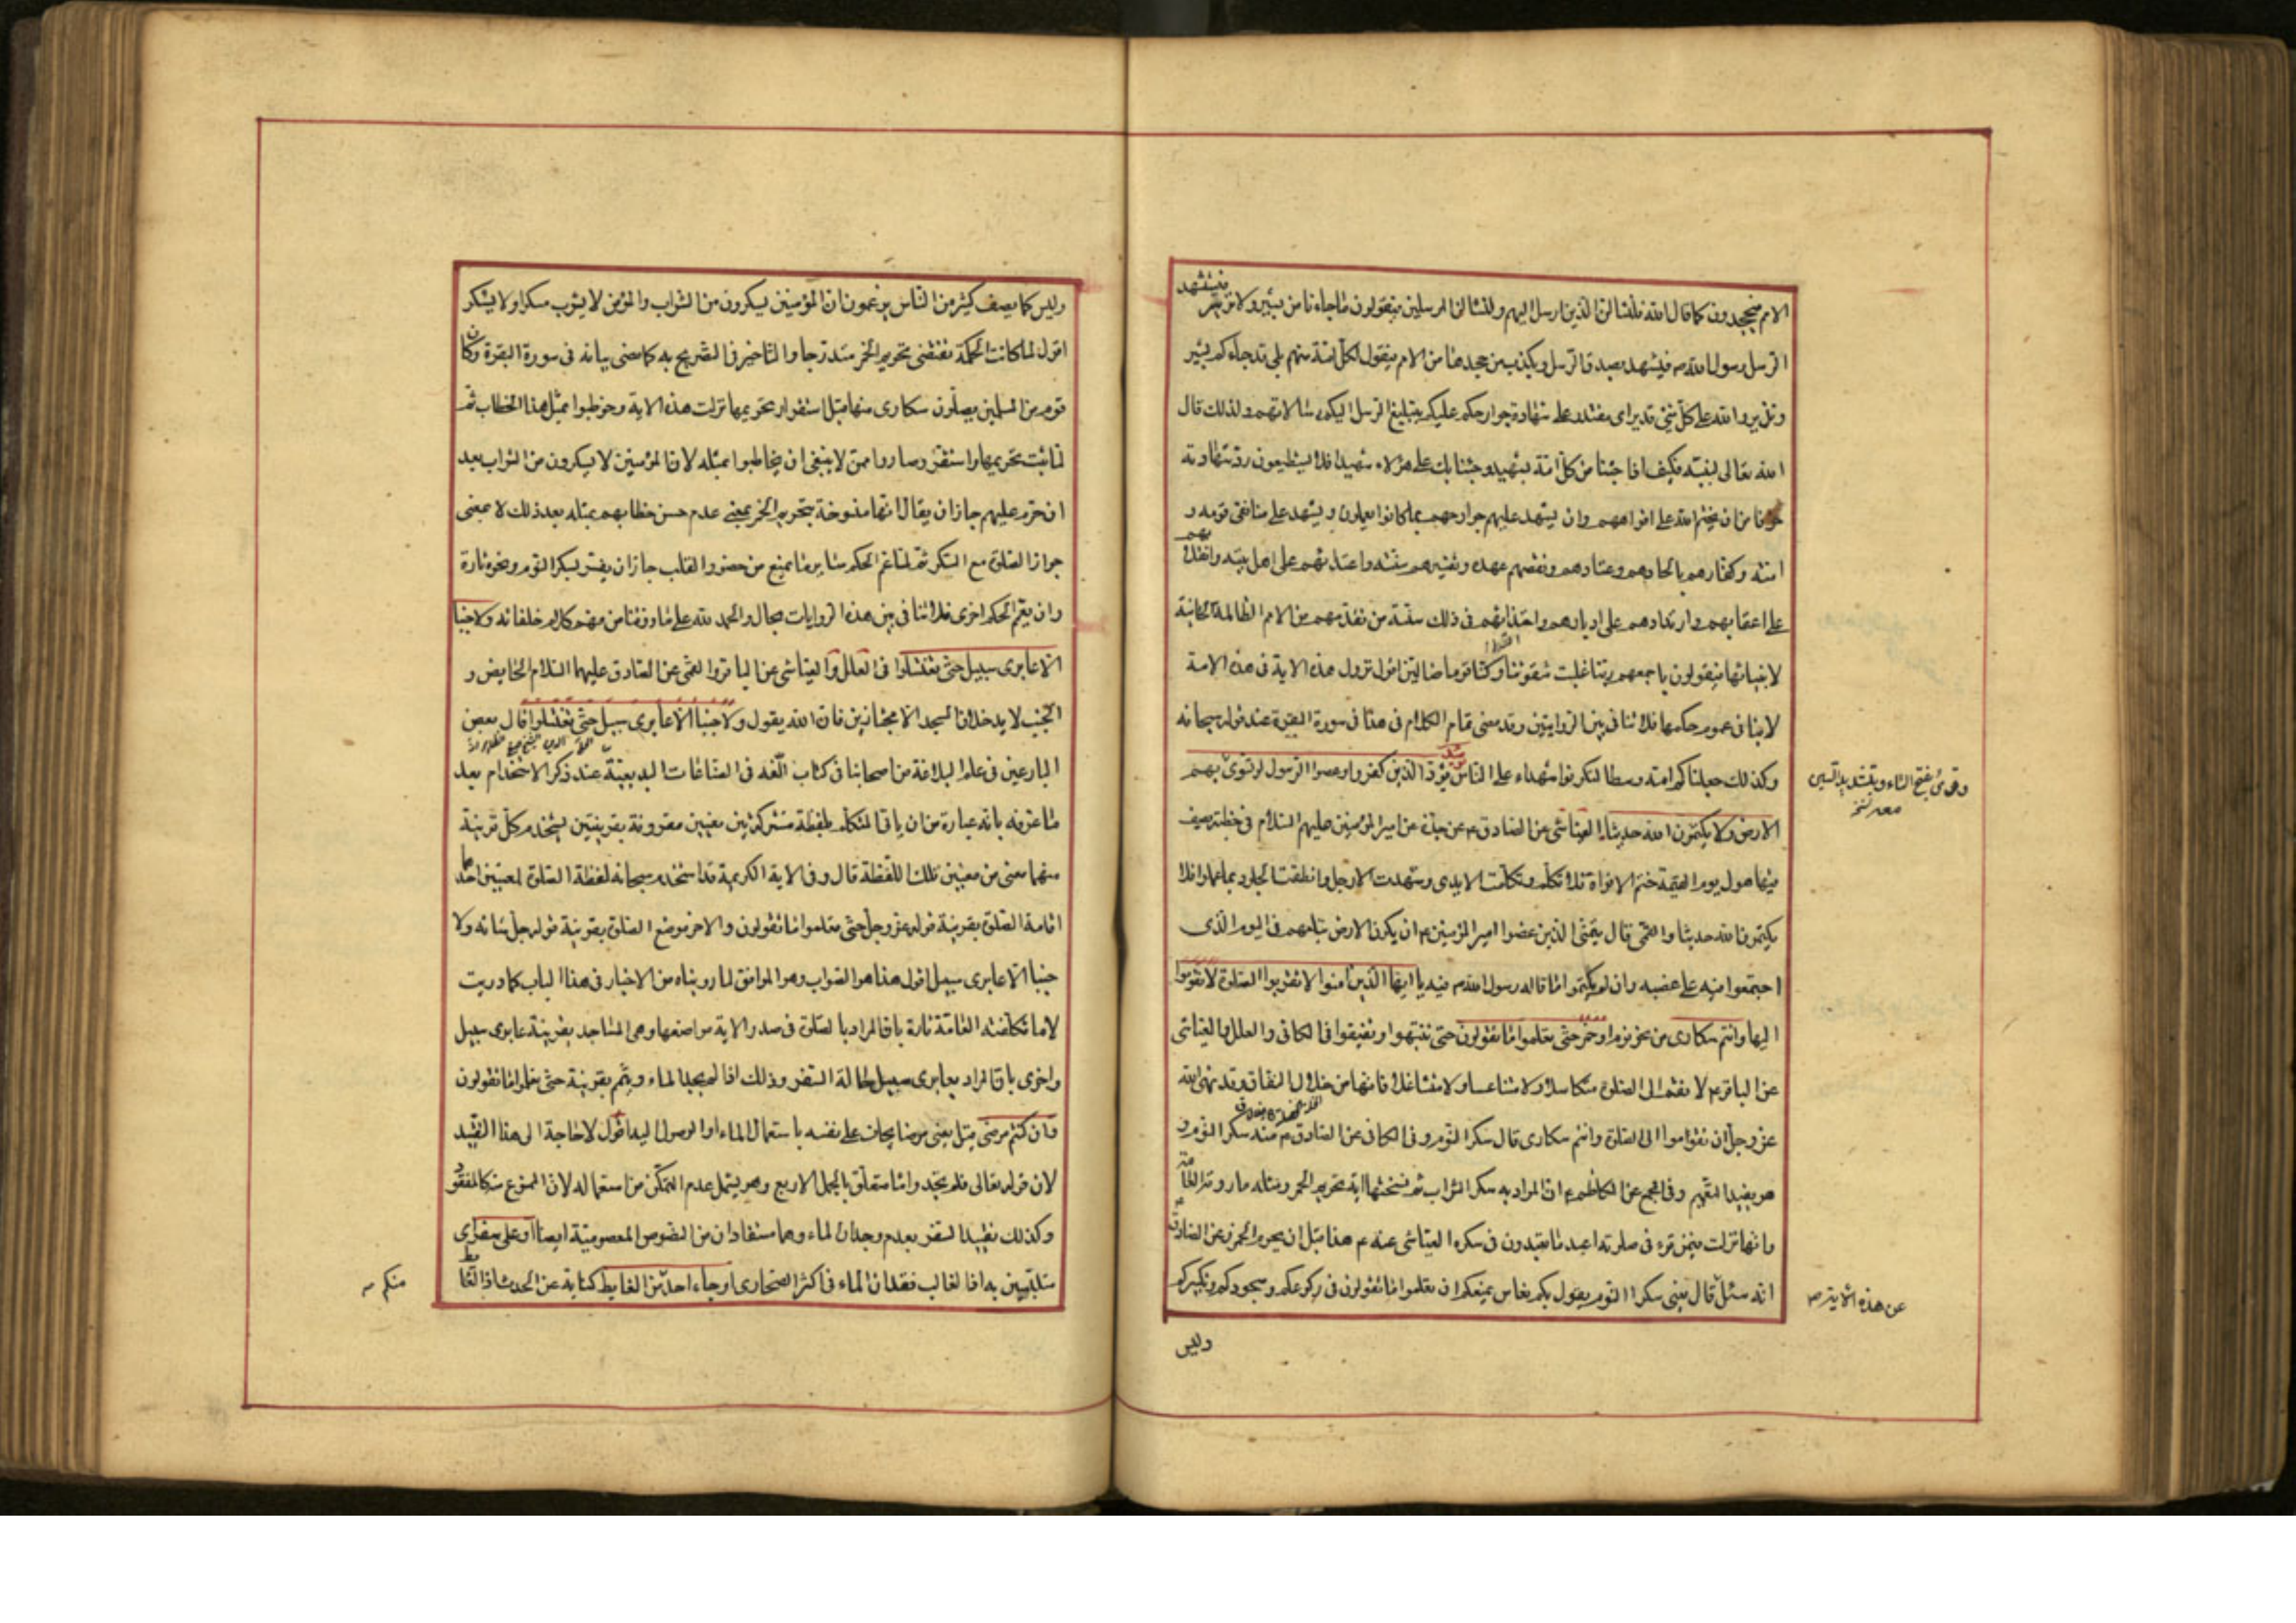 الامم فيجحدون كما قال الله فلنسالن الذين ارسل اليهم ولنسالن المرسلين فيقولون ما جاءنا من بشير ولا نذير فيستشهد
الرسل رسول الله ص فيشهد بصدق الرسل ويكذب من جحدها من الامم فيقول لكل امة منهم بلى قد جاءكم بشير
ونذير والله على كل شئ قدير اى مقتدر على شهادة جوارحكم عليكم بتبليغ الرسل اليكم رسالاتهم ولذلك قال
الله تعالى لنبيه فكيف اذا جئنا من كل امة بشهيد وجئنا بك على هؤلاء شهيدا فلا يستطيعون رد شهادته
خوفا من ان يختم الله على افواههم وان يشهد عليهم جوارحهم بما كانوا يعملون ويشهد على منافقى قومه و
امته وكفارهم بالحادهم وعنادهم ونقضهم عهده وتغييرهم سنته واعتدائهم على اهل بيته وانقلابهم
على اعقابهم وارتدادهم على ادبارهم واحتذائهم فى ذلك سنة من تقدمهم من الامم الظالمة الخائنة
لانبيائها فيقولون باجمعهم ربنا غلبت علينا شقوتنا وكنا قوما ضالين اقول نزول هذه الاية فى هذه الامة
لا ينافى عموم حكمها فلا تنافى بين الروايتين وقد مضى تمام الكلام فى هذا فى سورة البقرة عند قوله سبحانه
وكذلك جعلناكم امة وسطا لتكونوا شهداء على الناس يومئذ يود الذين كفروا وعصوا الرسول لو تسوى بهم
وقرئ بفتح التاء وبتشديد السين
معه نسخر
الارض ولا يكتمون الله حديثا العياشى عن الصادق ع عن جده عن امير المؤمنين عليهم السلام فى خطبة يصف
فيها هول يوم القيمة ختم الافواه فلا تكلم وتكلمت الايدى وشهدت الارجل وانطقت الجلود بما عملوا فلا
يكتمون الله حديثا والقمى قال يتمنى الذين غصبوا امير المؤمنين ع ان يكون الارض ابتلعتهم فى اليوم الذى
اجتمعوا فيه على غصبه وان لم يكتموا ما قاله رسول الله ص فيه يا ايها الذين امنوا لا تقربوا الصلوة لا تقوموا
اليها وانتم سكارى من نحو نوم او خمر حتى تعلموا ما تقولون حتى تنتبهوا وتفيقوا فى الكافى والعلل والعياشى
عن الباقر ع لا تقم الى الصلوة متكاسلا ولا متناعسا ولا متثاقلا فانها من خلال النفاق وقد نهى الله
عز وجل ان تقوموا الى الصلوة وانتم سكارى قال سكر النوم وفى الكافى عن الصادق ع منه سكر النوم و
هو يفيد التعميم وفى المجمع عن الكاظم ع ان المراد به سكر الشراب ثم نسختها اية تحريم الخمر ومثله ما روته العامة
وانها نزلت فيمن قرء فى صلوته اعبد ما تعبدون فى سكره العياشى عنه ع هذا قبل ان يحرم الخمر وعن الصادق ع
انه سئل قال يعنى سكر النوم يقول بكم نعاس يمنعكم ان تعلموا ما تقولون فى ركوعكم وسجودكم وتكبيركم
عن هذه الاية صح
وليس
وليس كما يصف كثير من الناس يزعمون ان المؤمنين يسكرون من الشراب والمؤمن لا يشرب مسكرا ولا يسكر
اقول لما كانت الحكمة تقتضى تحريم الخمر متدرجا والتاخير فى التصريح به كما مضى بيانه فى سورة البقرة وكان
قوم من المسلمين يصلون سكارى منها قبل استقرار تحريمها نزلت هذه الاية وخوطبوا بمثل هذا الخطاب ثم
لما ثبت تحريمها واستقر وصاروا ممن لا ينبغى ان يخاطبوا بمثله لان المؤمنين لا يسكرون من الشراب بعد
ان حرم عليهم جاز ان يقال انها منسوخة بتحريم الخمر بمعنى عدم حسن خطابهم بمثله بعد ذلك لا بمعنى
جواز الصلوة مع السكر ثم لما عم الحكم سائر ما يمنع من حضور القلب جاز ان يفسر بسكر النوم ونحوه تارة
وان يعم الحكم اخرى فلا تنافى بين هذه الروايات بحال والحمد لله على ما رزقنا من فهم كلام خلفائه ولا جنبا
الا عابرى سبيل حتى تغتسلوا فى العلل والعياشى عن الباقر والقمى عن الصادق عليهما السلام الحايض و
الجنب لا يدخلان المسجد الا مجتازين فان الله يقول ولا جنبا الا عابرى سبيل حتى تغتسلوا قال بعض
البارعين فى علم البلاغة من اصحابنا فى كتاب الفه فى الصناعات البديعية عند ذكر الاستخدام بعد
ما عرفه بانه عبارة من ان ياتى المتكلم بلفظة مشتركة بين معنيين مقرونة بقرينتين يستخدم كل قرينة
منهما معنى من معنيين تلك اللفظة قال وفى الاية الكريمة قد استخدم سبحانه لفظة الصلوة لمعنيين احدهما
اقامة الصلوة بقرينة قوله عز وجل حتى تعلموا ما تقولون والاخر موضع الصلوة بقرينة قوله جل شانه ولا
جنبا الا عابرى سبيل اقول هذا هو الصواب وهو الموافق لما رويناه من الاخبار فى هذا الباب كما دريت
لا ما تكلفته العامة تارة بان المراد بالصلوة فى صدر الاية مواضعها وهى المساجد بقرينة عابرى سبيل
واخرى بان المراد بعابرى سبيل حالة السفر وذلك اذا لم يجد الماء وتيمم بقرينة حتى تعلموا ما تقولون
وان كنتم مرضى قيل يعنى مرضا يخاف على نفسه باستعمال الماء او الوصول اليه اقول لا حاجة الى هذا التقييد
لان قوله تعالى فلم تجدوا ماء متعلق بالجمل الاربع وهو يشمل عدم التمكن من استعماله لان الممنوع منه كالمفقود
وكذلك تقييد السفر بعدم وجدان الماء وهما مستفادان من النصوص المعصومية ايضا او على سفر اى
متلبسين به اذ الغالب فقدان الماء فى اكثر الصحارى او جاء احد من الغايط كناية عن الحدث اذ الغايط
منكم ص